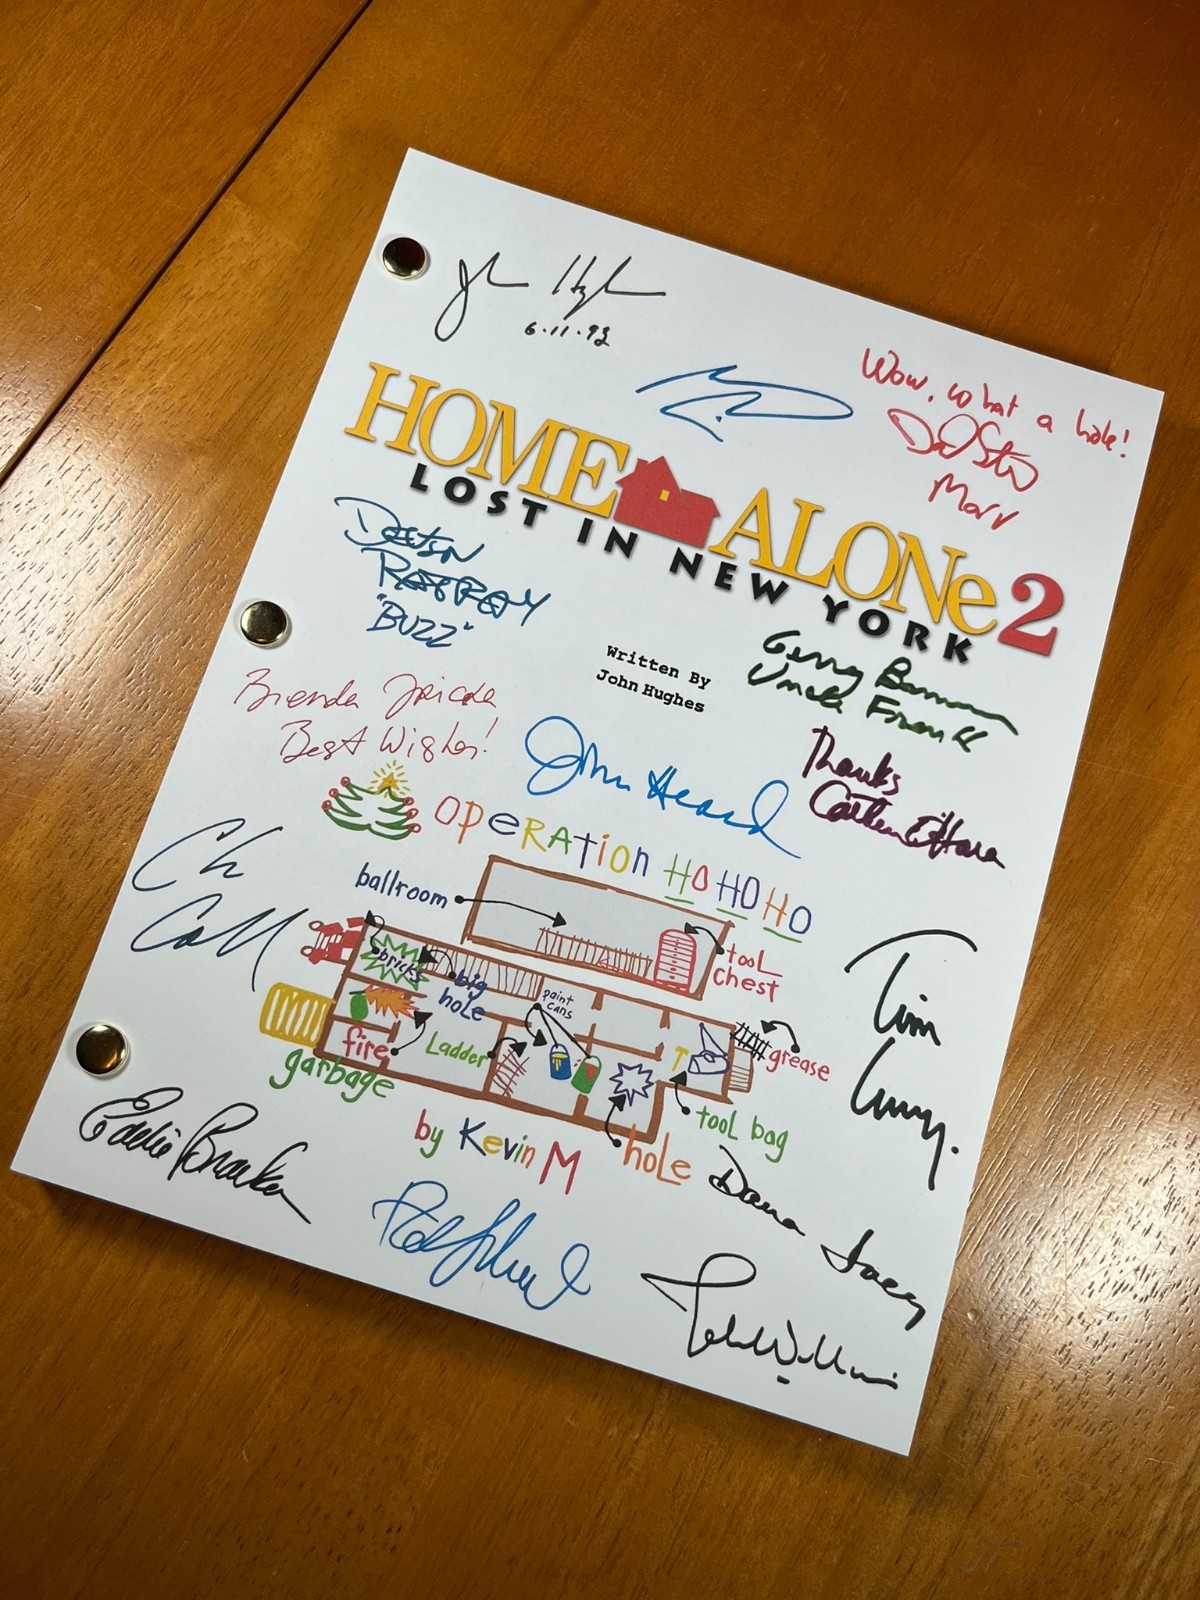 John Hughes
6·11·92
Wow, what a hole!
Marv
HOME ALONe 2
LOST IN NEW YORK
Devin
Ratray
"BUZZ"
Written By
John Hughes
Gerry Bamman
Uncle Frank
Brenda Fricker
Best Wishes!
John Heard
Thanks
Catherine O'Hara
OPeRATiON HO HO HO
ballroom
tool
chest
bricks
big
hole
paint
cans
fire
Ladder
grease
garbage
tool bag
by Kevin M
hole
Tim
Curry.
Eddie Bracken
Dana Ivey
Rob Schneider
John Williams